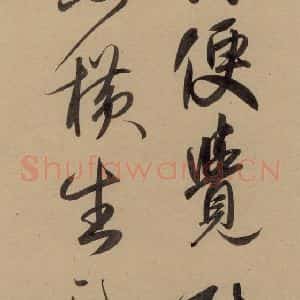 便覺
橫生
Shufawang.CN